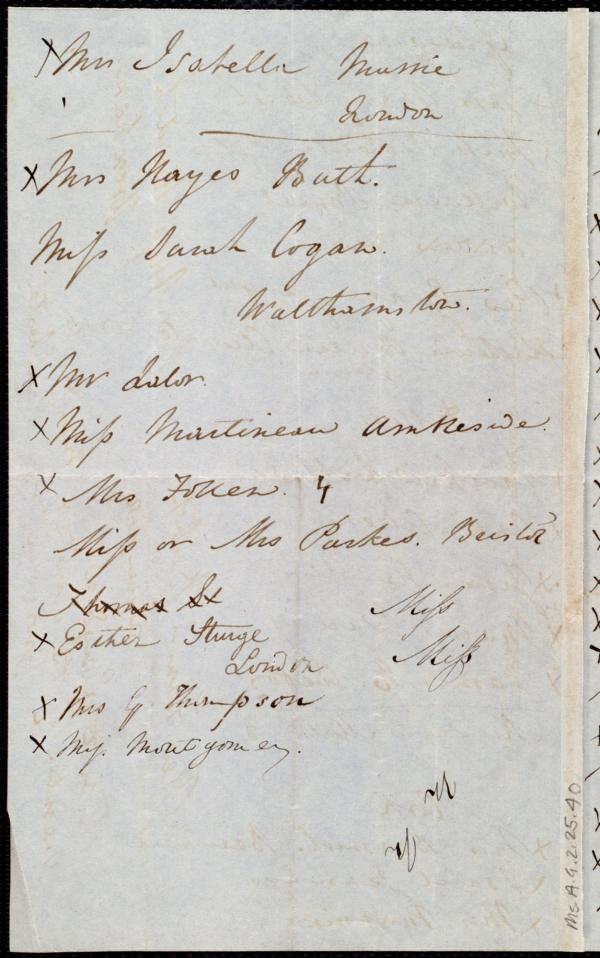 X Mrs Isabella Massie
London
X Mrs Hayes Bath.
Miss Sarah Cogan.
Walthamstow.
X Mr Lalor.
X Miss Martineau Ambleside.
X Mrs Follen. 4
Miss or Mrs Parkes. Bristol
Thomas St Miss
X Esther Sturge Miss
London
X Mrs G Thompson
X Miss Montgomery.
Ms. A. 9. 2. 25. 40